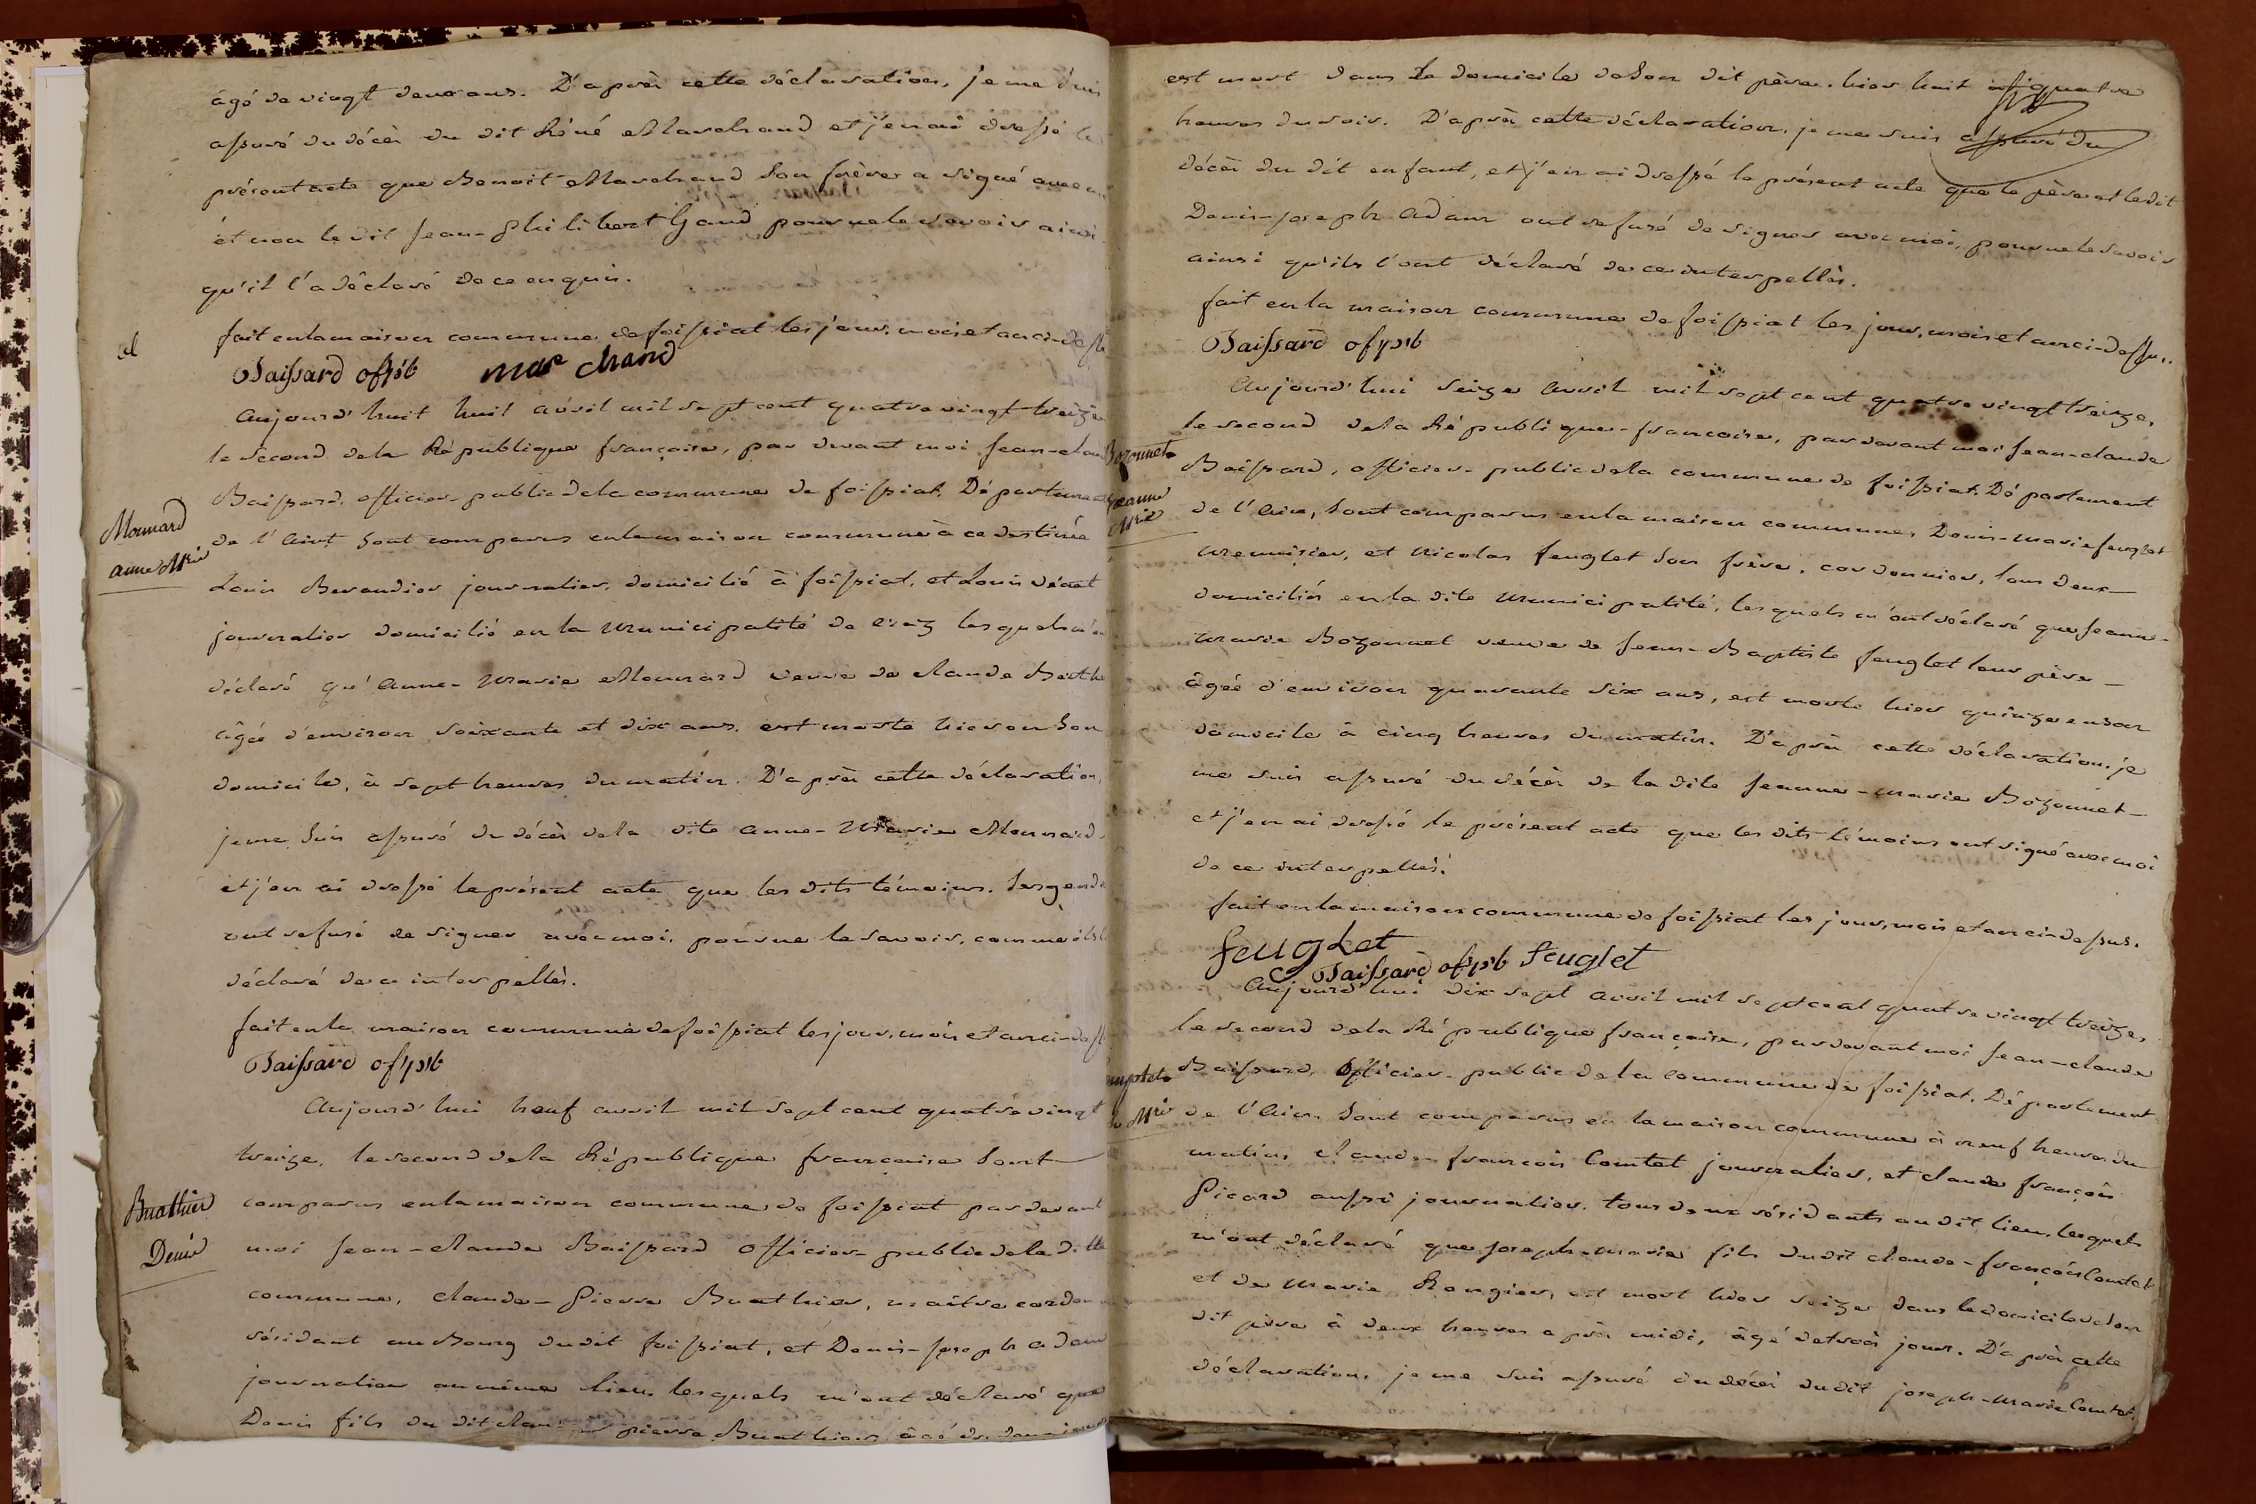 âgé de vingt deux ans. D'après cette déclaration, je me suis
assuré du décès du dit Réné Marchand et j'en ai dressé le
présent acte que Benoit Marchand son frère a signé avec
et non le dit Jean-Philibert Gand pour ne le savoir ainsi
qu'il l'a déclaré de ce enquis.
fait en la maison commune de foissiat les jour, mois et an ci-dess
Baissard off pub marchand
Aujourd'huit huit avril mil sept cent quatre vingt treize
le second de la République françoise, par devant moi Jean-clau
Baissard, officier-public de la commune de foissiat, Département
Monnard
anne Mrie
de l'Aint sont comparus en la maison commune à ce destinée
Louis Berandier journalier, domicilié à foissiat, et Louis
journalier domicilié en la municipalité de lesquels m'
déclaré qu'Anne-Marie Monnard veuve de claude
âgée d'environ soixante et dix ans, est morte hier en son
domicile, à sept heures du matin. D'après cette déclaration,
je me suis assuré du décès de la dite anne-Marie Monnard
et j'en ai dressé le présent acte que les dits témoins. ses gend
ont refusé de signer avec moi, pour ne le savoir, comme ils l
déclaré de ce interpellés.
fait en la maison commune de foissiat les jour, mois et an ci-dess
Baissard off pub
Aujourd'hui neuf avril mil sept cent quatre vingt
treize, le second de la République françoise sont
Buathier
Denis
comparus en la maison commune de foissiat par devant
moi Jean-claude Baissard officier-public de la ditte
commune, claude-Pierre Buathier, maître cordon
résidant au Bourg du dit foissiat, et Denis-Joseph adam
journalier au même lieu, lesquels m'ont déclaré que
Denis fils du dit claude pierre Buathier, âgé de
est mort dans le domicile de son dit père, hier huit à quatre
heures du soir. D'après cette déclaration, je me suis assuré du
décès du dit enfant, et j'en ai dressé le présent acte que le père et le dit
Denis-joseph adam ont refusé de signer avec moi, pour ne le savoir
ainsi qu'ils l'ont déclaré de ce interpellés.
fait en la maison commune de foissiat les jour, mois et an ci-dessus.
Baissard off pub
Aujourd'hui seize avril mil sept cent quatre vingt treize,
le second de la République-francoise, par devant moi Jean-claude
Bozonnet
Jeanne
Mrie
Baissard, officier-public de la commune de foissiat, Département
de l'Ain, sont comparus en la maison commune, Denis-marie feuglet
menuisier, et Nicolas feuglet son frère, cordonnier, tous deux
domiciliés en la dite Municipalité, lesquels m'ont déclaré que Jeanne-
marie Bozonnet veuve de Jean-Baptiste feuglet leur père
âgée d'environ quarante six ans, est morte hier quinze en son
domicile à cinq heures du matin. D'après cette déclaration, je
me suis assuré du décès de la dite Jeanne-marie Bozonnet
et j'en ai dressé le présent acte que les dits témoins ont signé avec moi
de ce interpellés.
fait en la maison commune de foissiat les jour, mois et an ci-dessus.
feuglet Baissard off pub feuglet
Aujourd'hui dix sept avril mil sept cent quatre vingt treize,
le second de la République françoise, par devant moi Jean-claude
Baissard, officier-public de la commune de foissiat, Département
Mrie
de l'Ain, sont comparus en la maison commune à neuf heures du
matin, claude-francois Comtet journalier, et claude françois
Picard aussi journalier, tous deux résidants au dit lieu, lesquels
m'ont déclaré que joseph-marie fils du dit claude-françois Comtet
et de Marie Rongier, est mort hier seize dans le domicile de son
dit père à deux heures après midi, âgé de trois jours. D'après cette
déclaration, je me suis assuré du décès du dit joseph-marie Comtet,